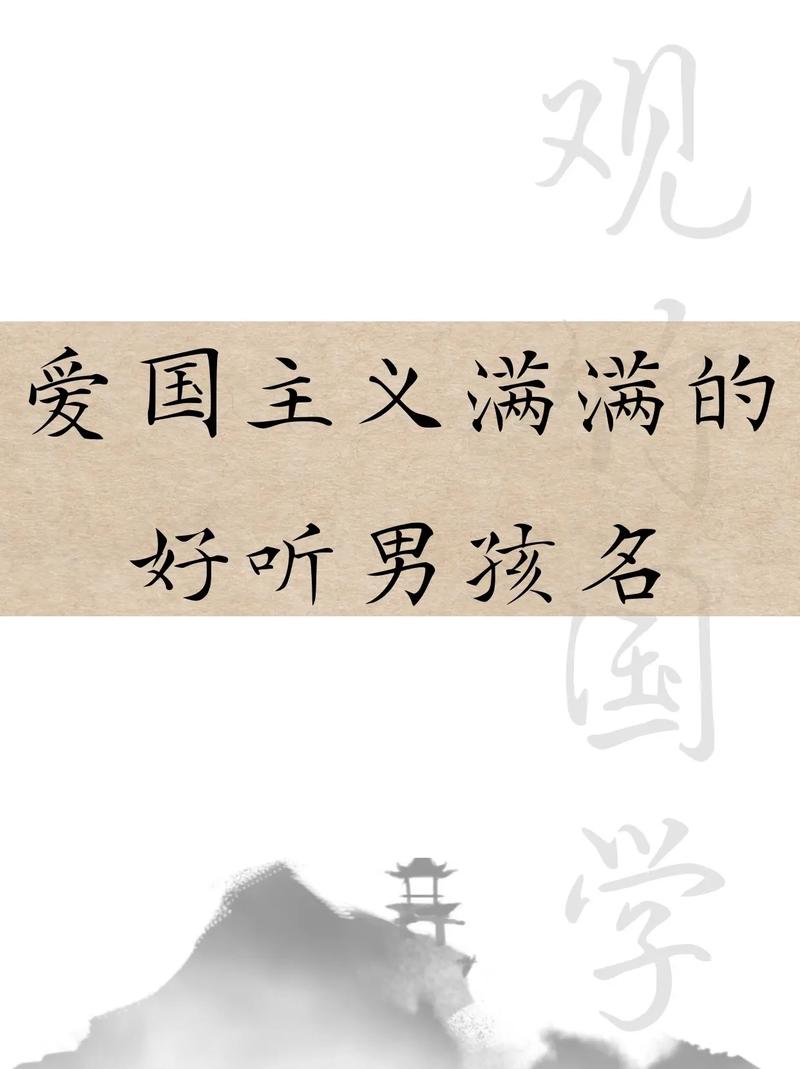 爱国主义满满的
好听男孩名
观
国学